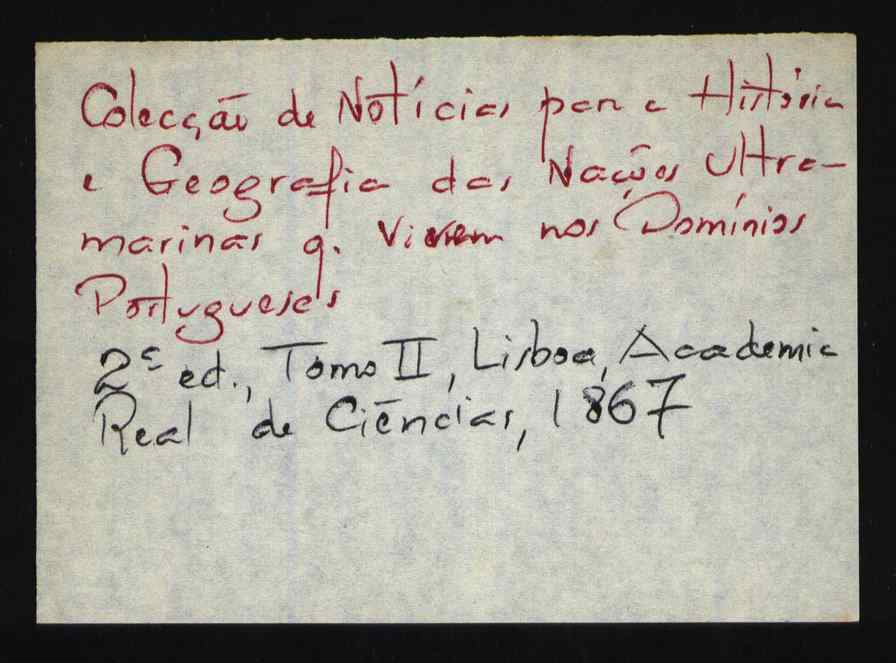 Colecção de Notícias para a História
e Geografia das Nações Ultra-
marinas q. vivem nos Domínios
Portugueses
2ª ed., Tomo II, Lisboa, Academia
Real de Ciências, 1867